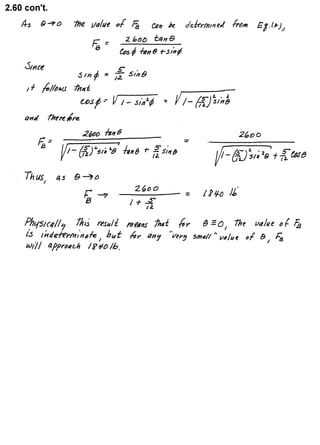 2.60 con't.
As θ→0 the value of F_B can be determined from Eq.(1),
F_B = 2600 tanθ / (cosφ tanθ + sinφ)
Since
sinφ = 5/12 sinθ
it follows that
cosφ = √(1 - sin²φ) = √(1 - (5/12)² sin²θ)
and therefore
F_B = 2600 tanθ / (√(1 - (5/12)² sin²θ) tanθ + 5/12 sinθ) = 2600 / (√(1 - (5/12)² sin²θ) + 5/12 cosθ)
Thus, as θ→0
F_B → 2600 / (1 + 5/12) = 1840 lb
Physically this result means that for θ=0, the value of F_B
is indeterminate, but for any "very small" value of θ, F_B
will approach 1840 lb.